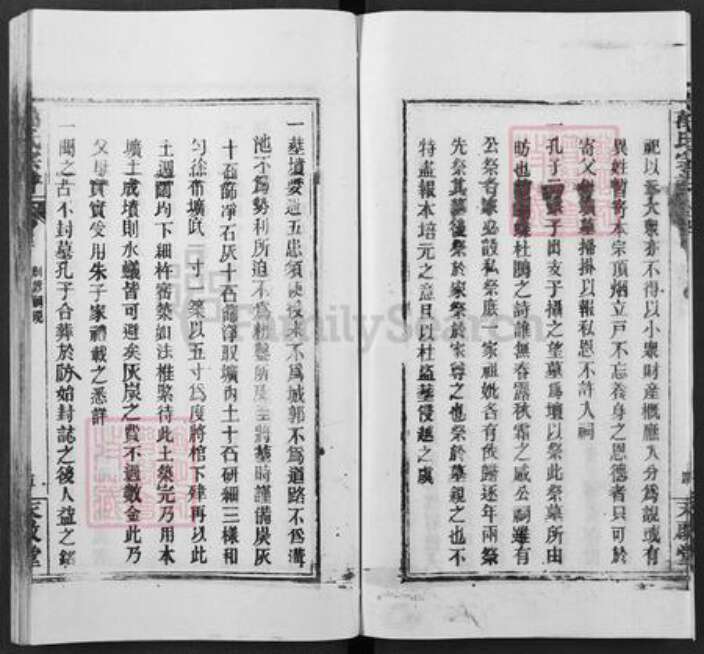 祀以承大衆亦不得以小衆財產概應入分爲說或有
異姓暫寄本宗頂烟立戶不忘養身之恩德者只可於
寄父母墳墓掃掛以報私恩不許入祠
一孔子 子曰 于墦之望墓爲壇以祭此祭墓所由
昉也 杜鵑之詩誰無春露秋霜之感公祠雖有
公祭各家必設私祭底一家祖妣各有攸歸逐年兩祭
先祭其墓後祭於家祭於家尊之也祭於墓親之也不
特盡報本培元之意且以杜盜塟侵越之虞
一塋墳要避五患須使後來不爲城郭不爲道路不爲溝
池不爲勢利所迫不爲耕犂所及 將塟時謹備炭灰
十石篩凈石灰十石篩凈取壙內土十石研細三樣和
勻徐布壙底一寸一築以五寸爲度將棺下肂再以此
土週圍均下細杵密築如法椎緊待此土築完乃用本
壙土成墳則水蟻皆可避矣灰炭之費不過數金此乃
父母實實受用朱子家禮載之悉詳
一聞之古不封墓孔子合葬於防始封誌之後人益之銘
天敘堂
天敘堂
FamilySearch